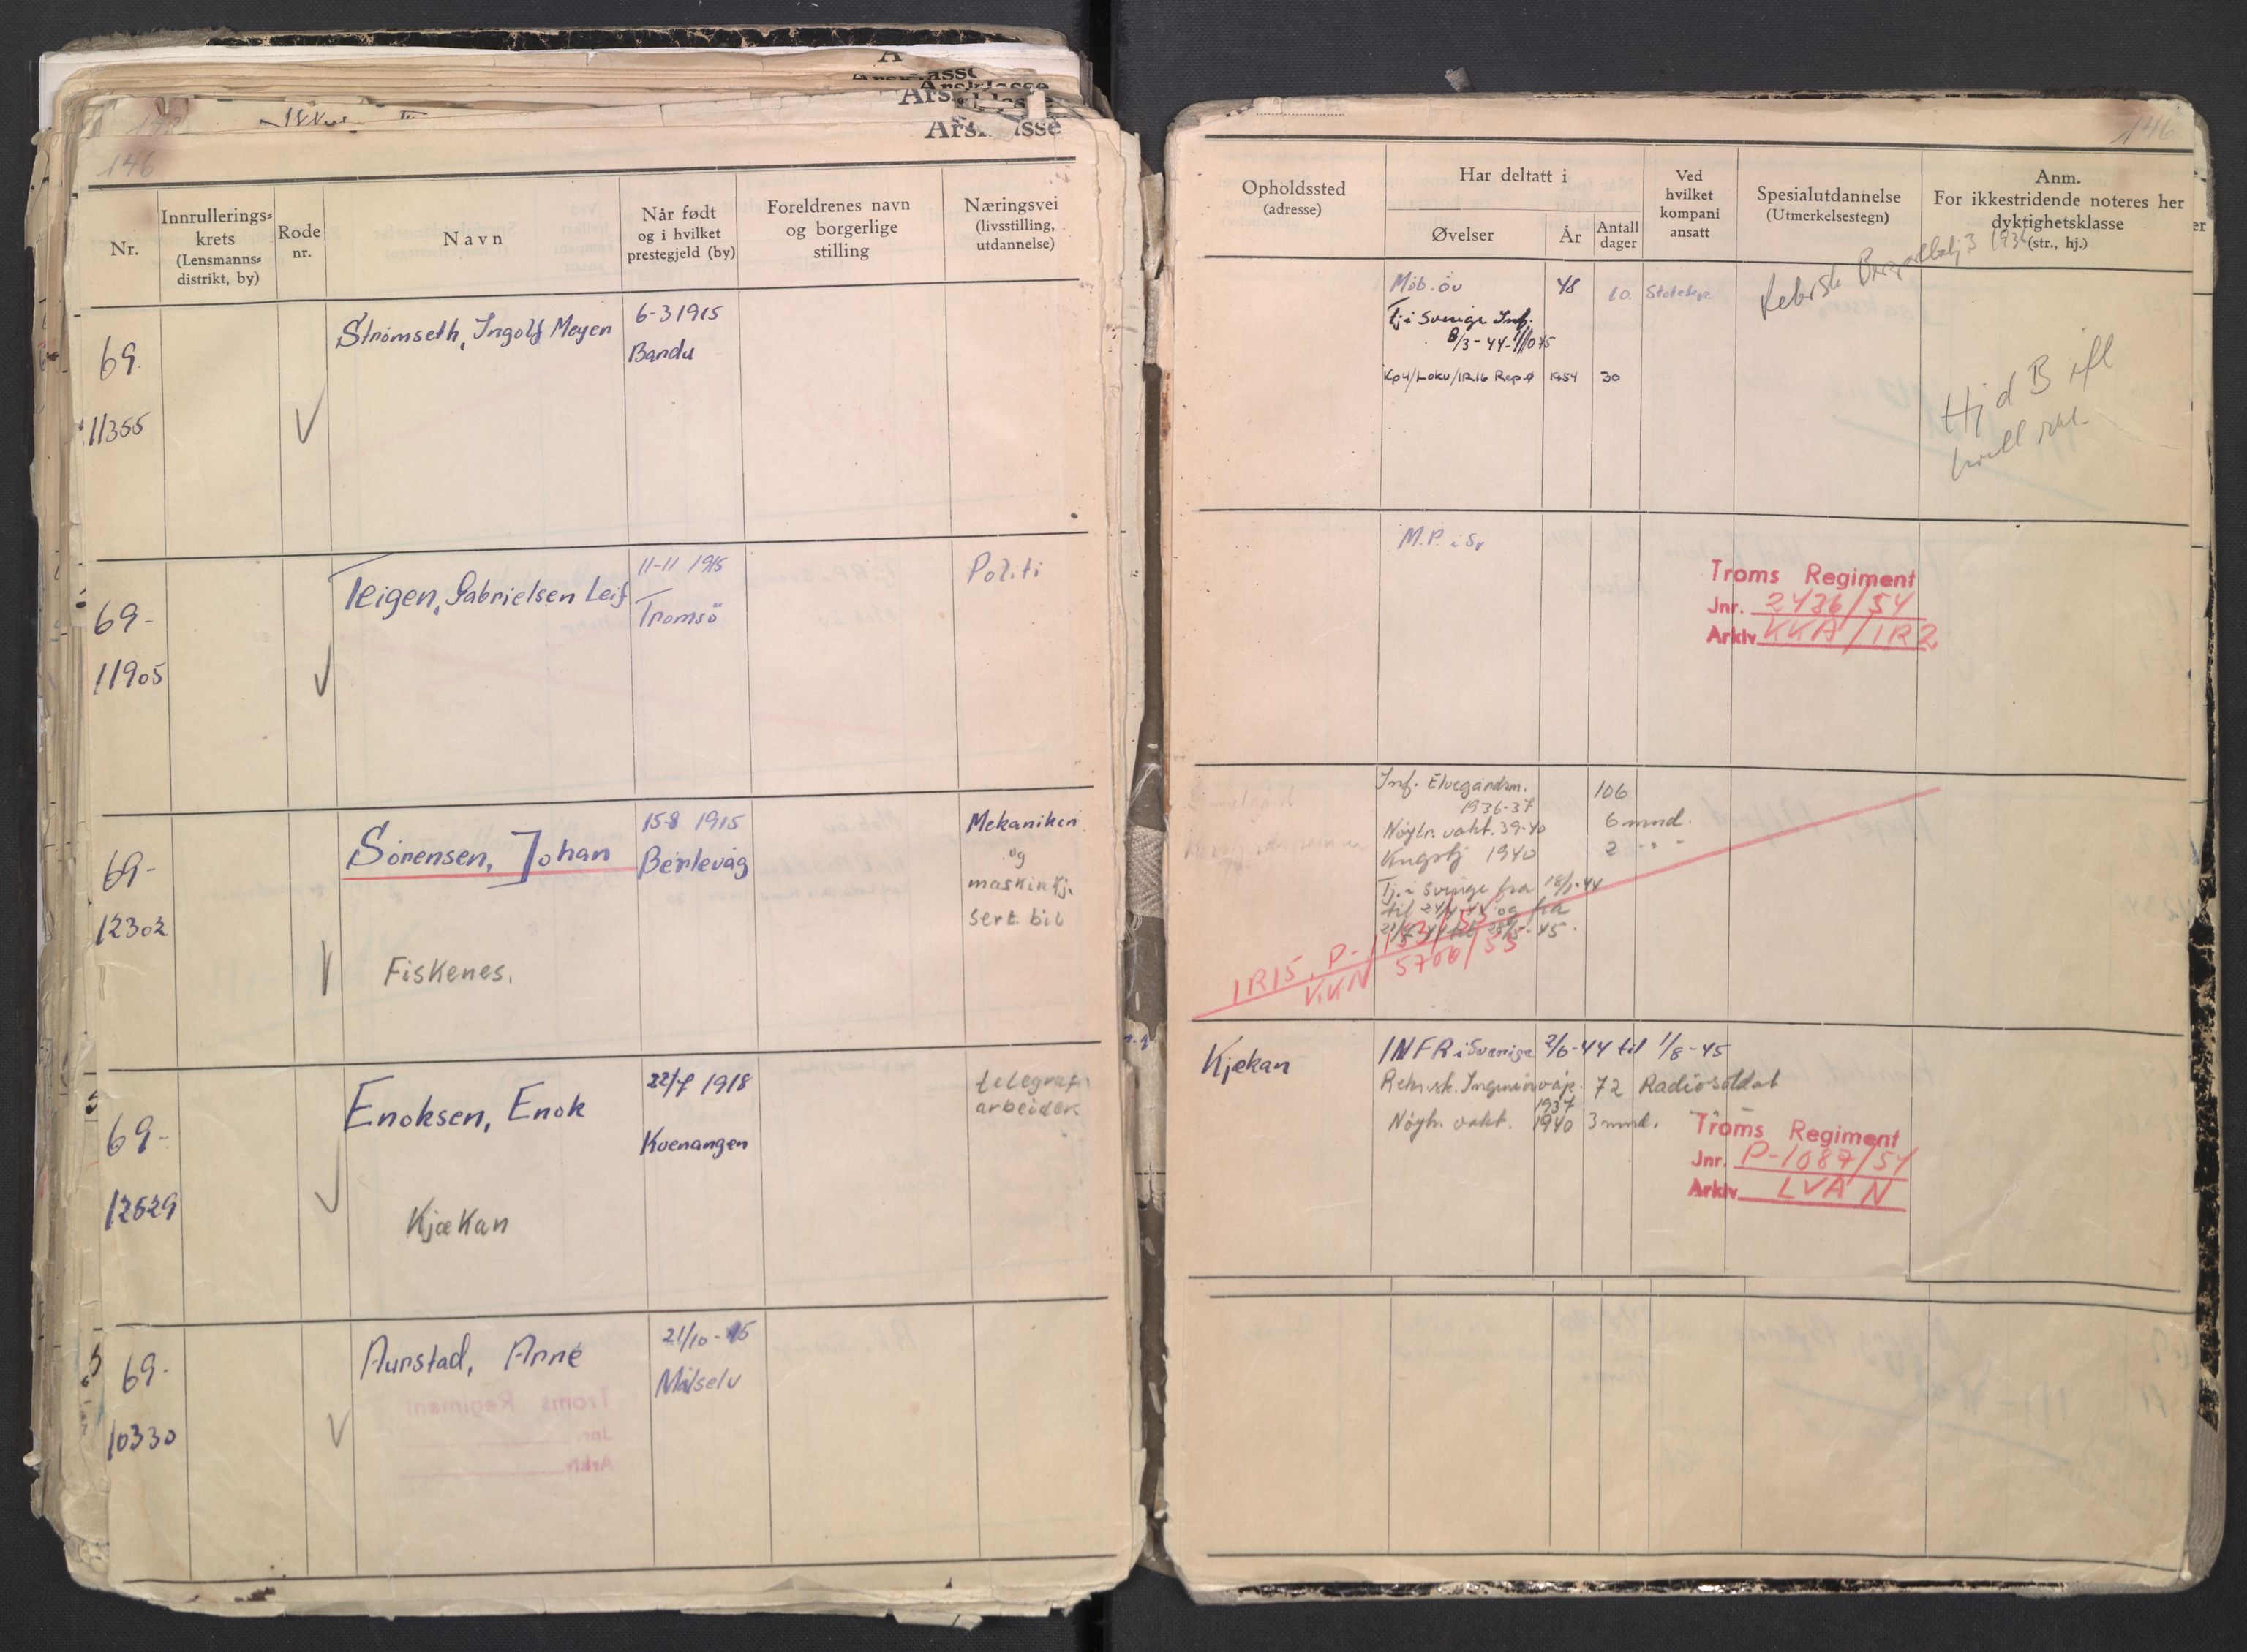 Årsklasse
146
Nr.
Innrullerings-
krets
(Lensmanns-
distrikt, by)
Rode
nr.
Navn
Når født
og i hvilket
prestegjeld (by)
Foreldrenes navn
og borgerlige
stilling
Næringsvei
(livsstilling,
utdannelse)
69
11355
Strømseth, Ingolf Meyer
6-3 1915
Bardu
69-
11905
Teigen, Gabrielsen Leif
11-11 1915
Tromsö
Politi
69-
12302
Sørensen, Johan
Fiskenes.
15-8 1915
Berlevåg
Mekaniker
og
maskinkj.
sert. bil
69-
12629
Enoksen, Enok
Kjækan
22/7 1918
Kvenangen
telegraf-
arbeider
69-
10330
Aunstad, Arne
21/10-15
Målselv
Troms Regiment
Jnr.
Arkiv
146
Opholdssted
(adresse)
Har deltatt i
Øvelser
År
Antall
dager
Ved
hvilket
kompani
ansatt
Spesialutdannelse
(Utmerkelsestegn)
Anm.
For ikkestridende noteres her
dyktighetsklasse
(str., hj.)
Mob. öv 48 10
Tj i Sverige Inf.
8/3-44-
Kp4/Lokv/IR16 Rep ø 1954 30
Rekrsk
Hj d B
M.P. i Sv
Troms Regiment
Jnr. 2436/54
Arkiv KKA/IR2
Inf. Elvegårdsm. 106
1936-37
Nöytr. vakt. 39-40 6 mnd.
Krigstj 1940 2 " -
Tj. i Sverige fra 18/1-44
til 24/4-44 og fra
IR15. P-1153/55
KKN 5700/55
Kjækan
INFR i Sverige 2/6-44 til 1/8-45
Rekr.sk. Ingeniörvåp. 72 Radiosoldat
1937
Nöytr. vakt. 1940 3 mnd.
Troms Regiment
Jnr. P-1087/54
Arkiv LVAN